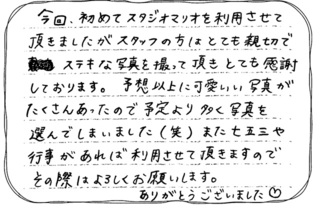 今回、初めてスタジオマリオを利用させて
頂きましたがスタッフの方はとても親切で
ステキな写真を撮って頂きとても感謝
しております。予想以上に可愛いい写真が
たくさんあったので予定より多く写真を
選んでしまいました(笑)また七五三や
行事があれば利用させて頂きますので
その際はよろしくお願いします。
ありがとうございました♡